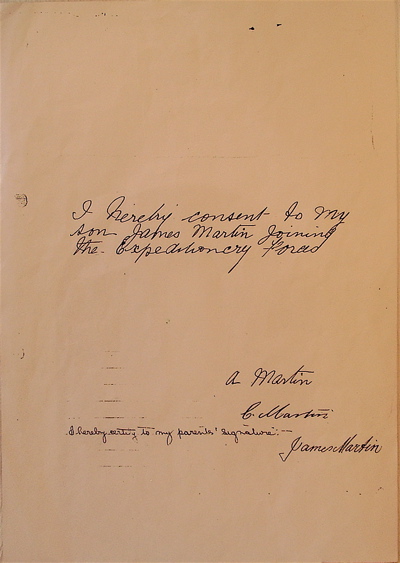 I hereby consent to my
son James Martin Joining
the Expeditioncry Forces
A Martin
C. Martin
I hereby certify to my parents' signature:—
James Martin